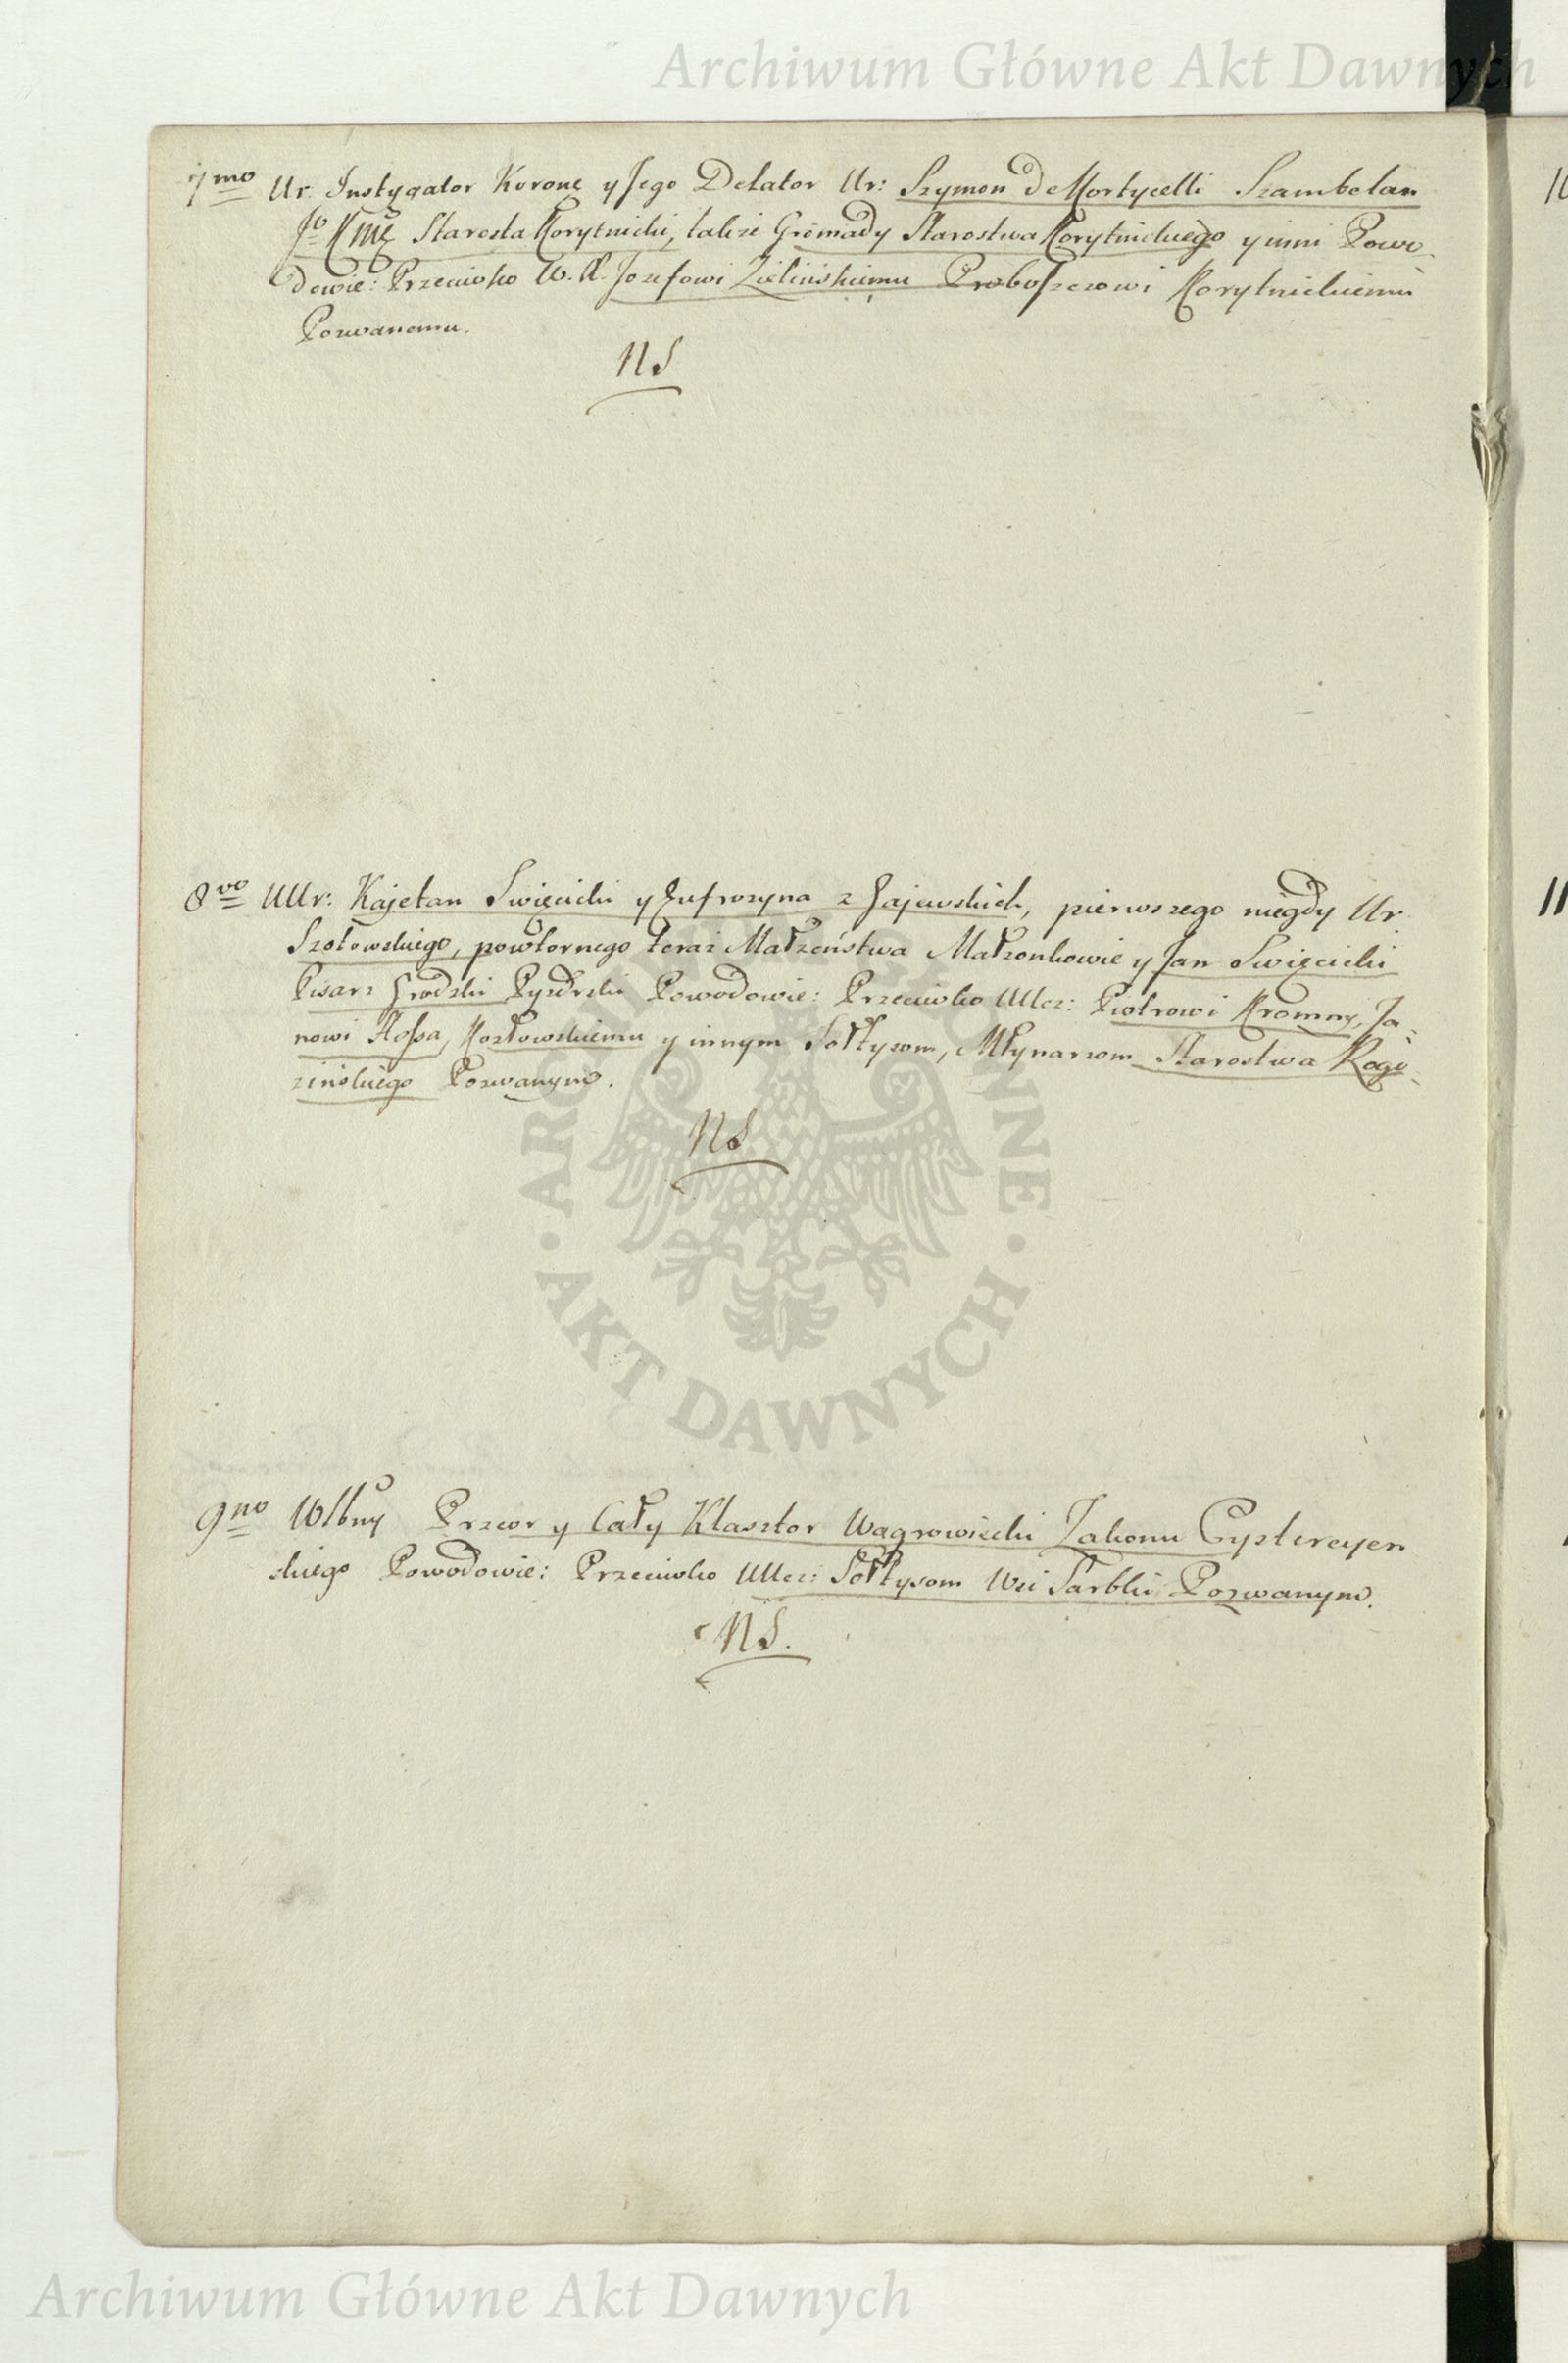 Archiwum Główne Akt Dawnych
7mo Ur. Instygator Koronę y Jego Delator Ur: Szymon de Mortycelli Szambelan
Jo KMę Starosta Korytnicki, także Gromady Starostwa Korytnickiego y inni Powo-
dowie: Przeciwko W. X. Jozefowi Zielinskiemu Proboszczowi Korytnickiemu
Pozwanemu.
NS
8vo UUr: Kajetan Swięcicki y Eufrozyna z Gajewskich, pierwszego niegdy Ur.
Szołowskiego, powtornego teraz Małżeństwa Małżonkowie y Jan Swięcicki
Pisarz Grodzki Pyzdrski Powodowie: Przeciwko UUcz: Piotrowi Kromny, Ja-
nowi Hossa, Kozłowskiemu y innym Sołtysom, Młynarzom Starostwa Rogo-
zinskiego Pozwanym.
NS
9no Wlbny Przeor y Cały Klasztor Wągrowiecki Zakonu Cystercyen
skiego Powodowie: Przeciwko UUcz: Sołtysom Wsi Tarbki Pozwanym.
NS.
10
11
ARCHIWUM GŁÓWNE • AKT DAWNYCH •
Archiwum Główne Akt Dawnych